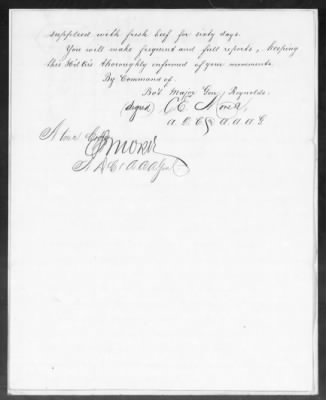 supplied with fresh beef for sixty days.
You will make frequent and full reports, keeping
this Hd. Qrs thoroughly informed of your movements.
By Command of
Bvt Major Gen Reynolds.
(signed) C E Morse
A. D. C & A. A. A. G
A true Copy
C E Morse
A. D. C & A A A Gen